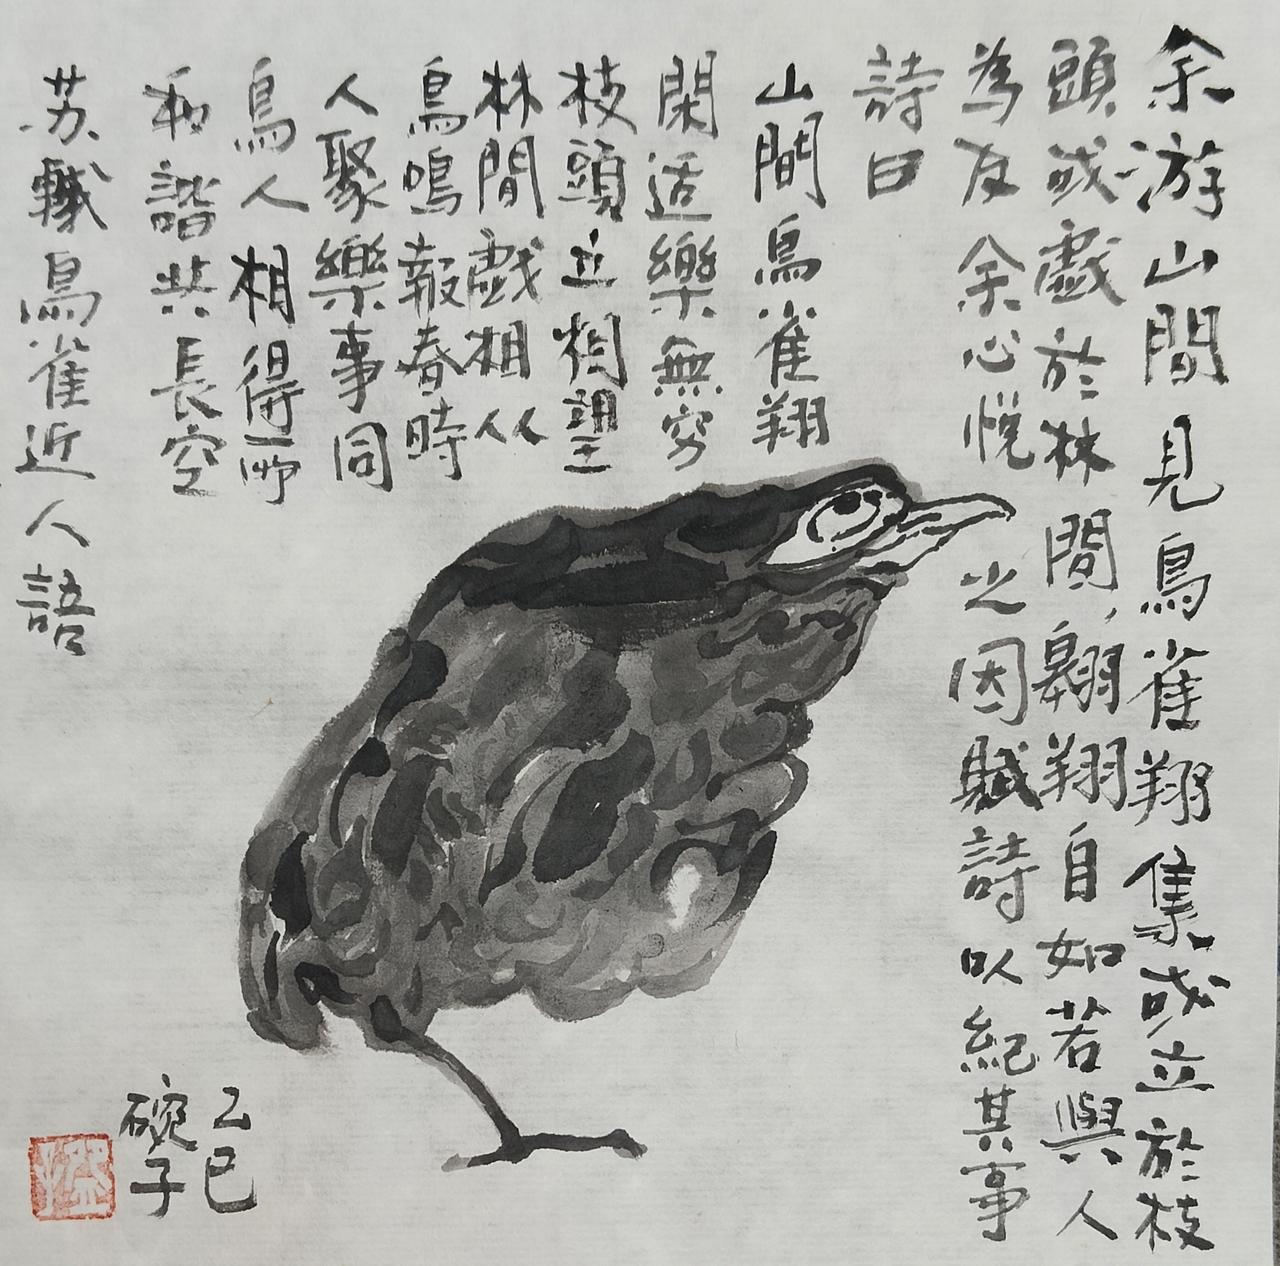 余游山間見鳥雀翔集或立於枝
頭或戲於林間翱翔自如若與人
為友余心悦之因賦詩以紀其事
詩曰
山間鳥雀翔
閑适樂無穷
枝頭立相望
林間戲相从
鳥鳴報春時
人聚樂事同
鳥人相得而
和諧共長空
苏轼鳥雀近人語
乙巳
碗子